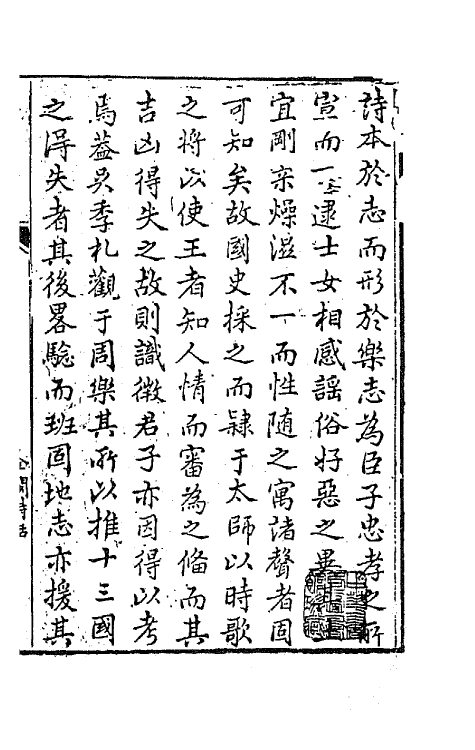 詩本於志而形於樂志為臣子忠孝之所
宣而一逮士女相感謡俗好惡之畢
宜剛柔燥溼不一而性随之寓諸聲者固
可知矣故國史採之而隸于太師以時歌
之将以使王者知人情而審為之俻而其
吉凶得失之故則識微君子亦因得以考
焉葢吴季札觀于周樂其所以推十三國
之得失者其後畧驗而班固地志亦援其
閩詩話